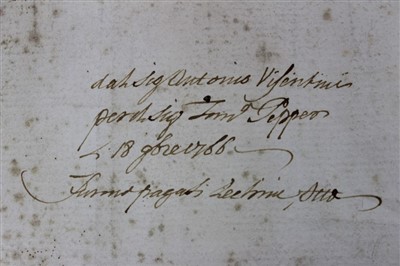 dal Sig Antonio Visentini
per il Sig Tomº Pepper
18 9bre 1766
Furno pagati Zechini Otto